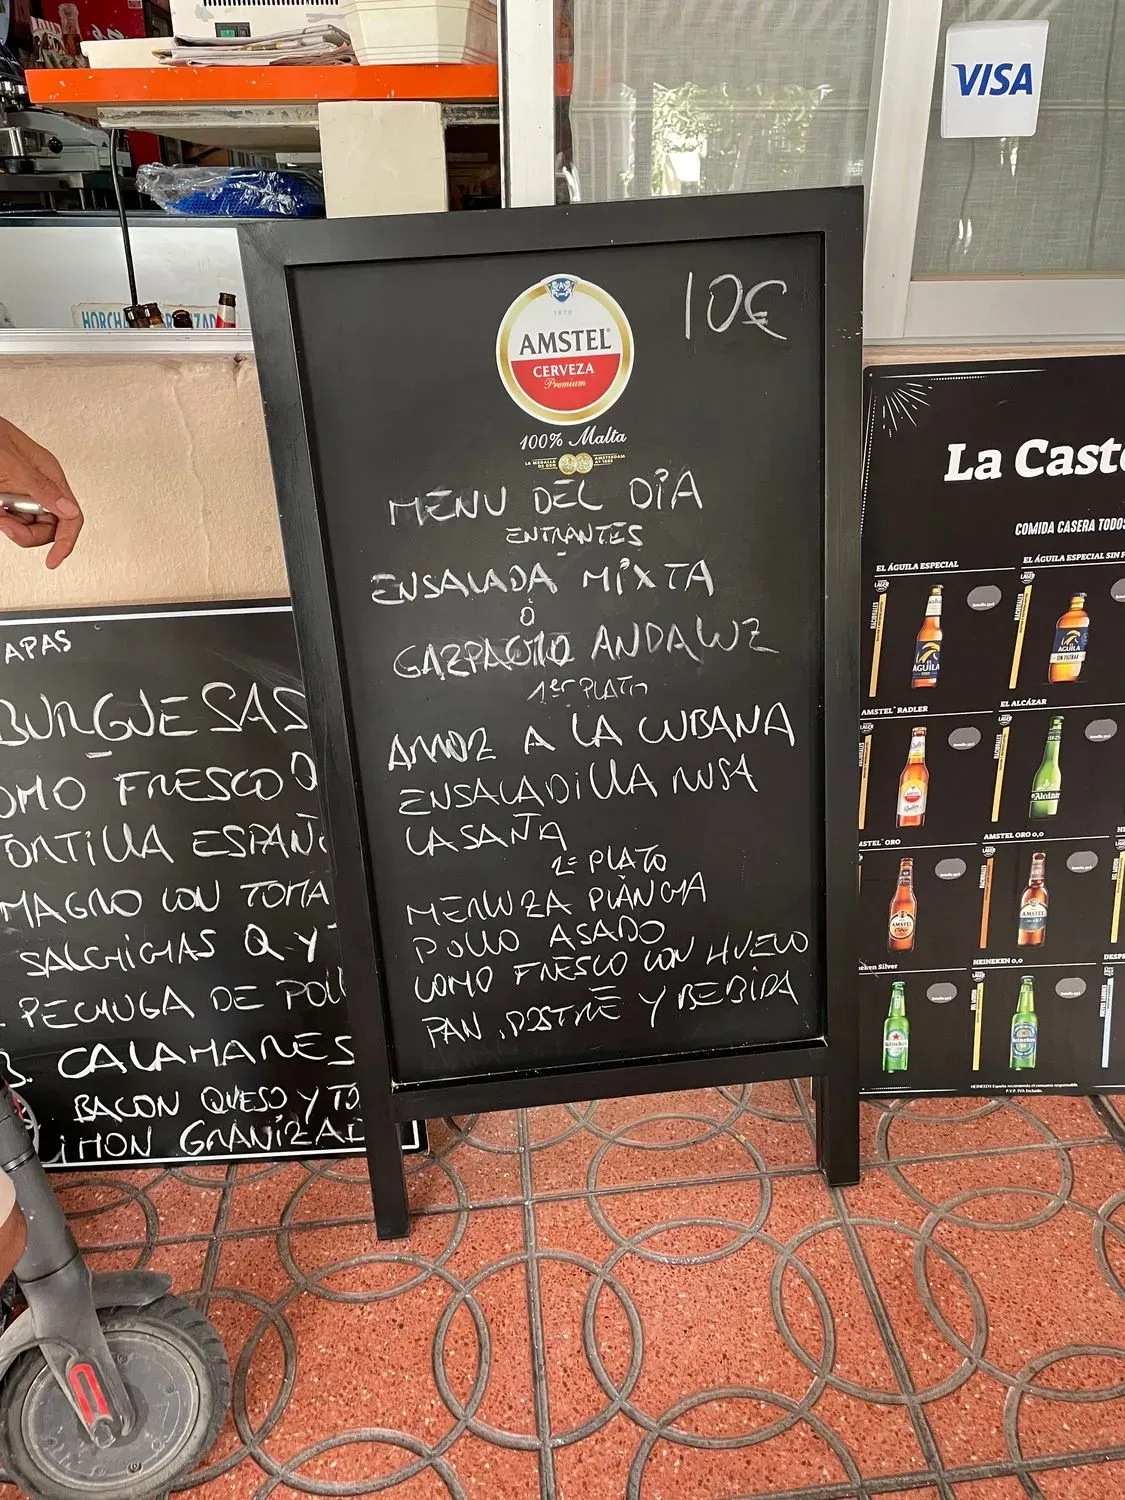 VISA
HORCHA
ZAD
10€
AMSTEL
CERVEZA
Premium
100% Malta
LA MEDALLA DE ORO
AMSTERDAM
MENU DEL DÍA
ENTRANTES
ENSALADA MIXTA
O
GAZPACHO ANDALUZ
1er PLATO
ARROZ A LA CUBANA
ENSALADILLA RUSA
LASAÑA
2= PLATO
MERLUZA PLANCHA
POLLO ASADO
LOMO FRESCO CON HUEVO
PAN, POSTRE Y BEBIDA
APAS
BURGUESAS
OMO FRESCO Q
TORTILLA ESPAÑ
MAGRO CON TOMA
SALCHICHAS Q Y
PECHUGA DE POLL
CALAMARES
BACON QUESO Y TO
IMON GRANIZAD
La Caste
COMIDA CASERA TODOS
EL ÁGUILA ESPECIAL
EL ÁGUILA ESPECIAL SIN F
AMSTEL RADLER
EL ALCÁZAR
STEL ORO
AMSTEL ORO 0,0
eken Silver
HEINEKEN 0,0
DESPE
HEINEKEN España recomienda el consumo responsable.
P.V.P. IVA Incluido.